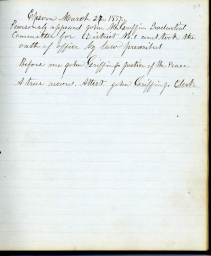 Epsom March 29. 1857
Personaly appeared John McGriffin Prudential
Committee for District No. 1 and took the
oath of office by law prescribed
Before me John Griffin Jr Justice of the Peace
A true record. Attest. John Griffin Jr. Clerk